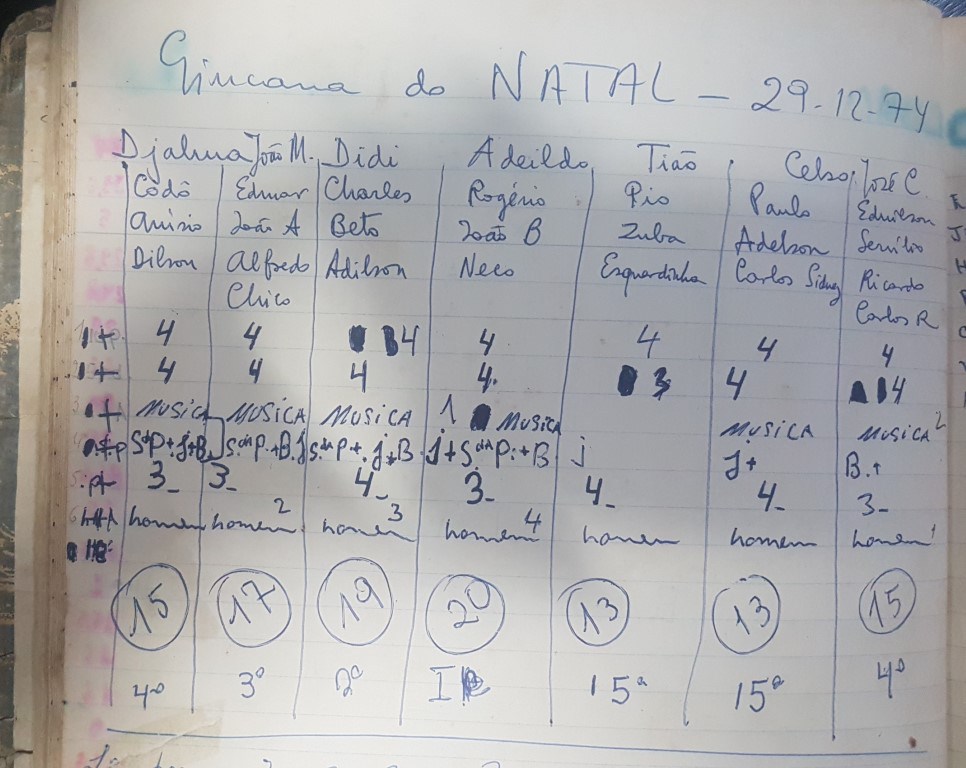 Gincana do NATAL - 29-12-74
Djalma João M. Didi Adeildo Tião Celso José C.
Côdô Edmar Charles Rogério Pio Paulo Edmilson
Anísio João A Beto João B Zuba Adelson Servílio
Dilson Alfredo Adilson Neco Esquardinha Carlos Sidney Ricardo
Chico Carlos R
4 4 4 4 4 4 4
4 4 4 4. 3 4 4
MUSICA MUSICA MUSICA 1 MUSICA MUSICA MUSICA 2
j J+ B.+
3- 3- 4- 3- 4- 4- 3-
homem homem 2 homem 3 homem 4 homem homem homem 1
15 17 19 20 13 13 15
4º 3º 2º I 15ª 15ª 4º